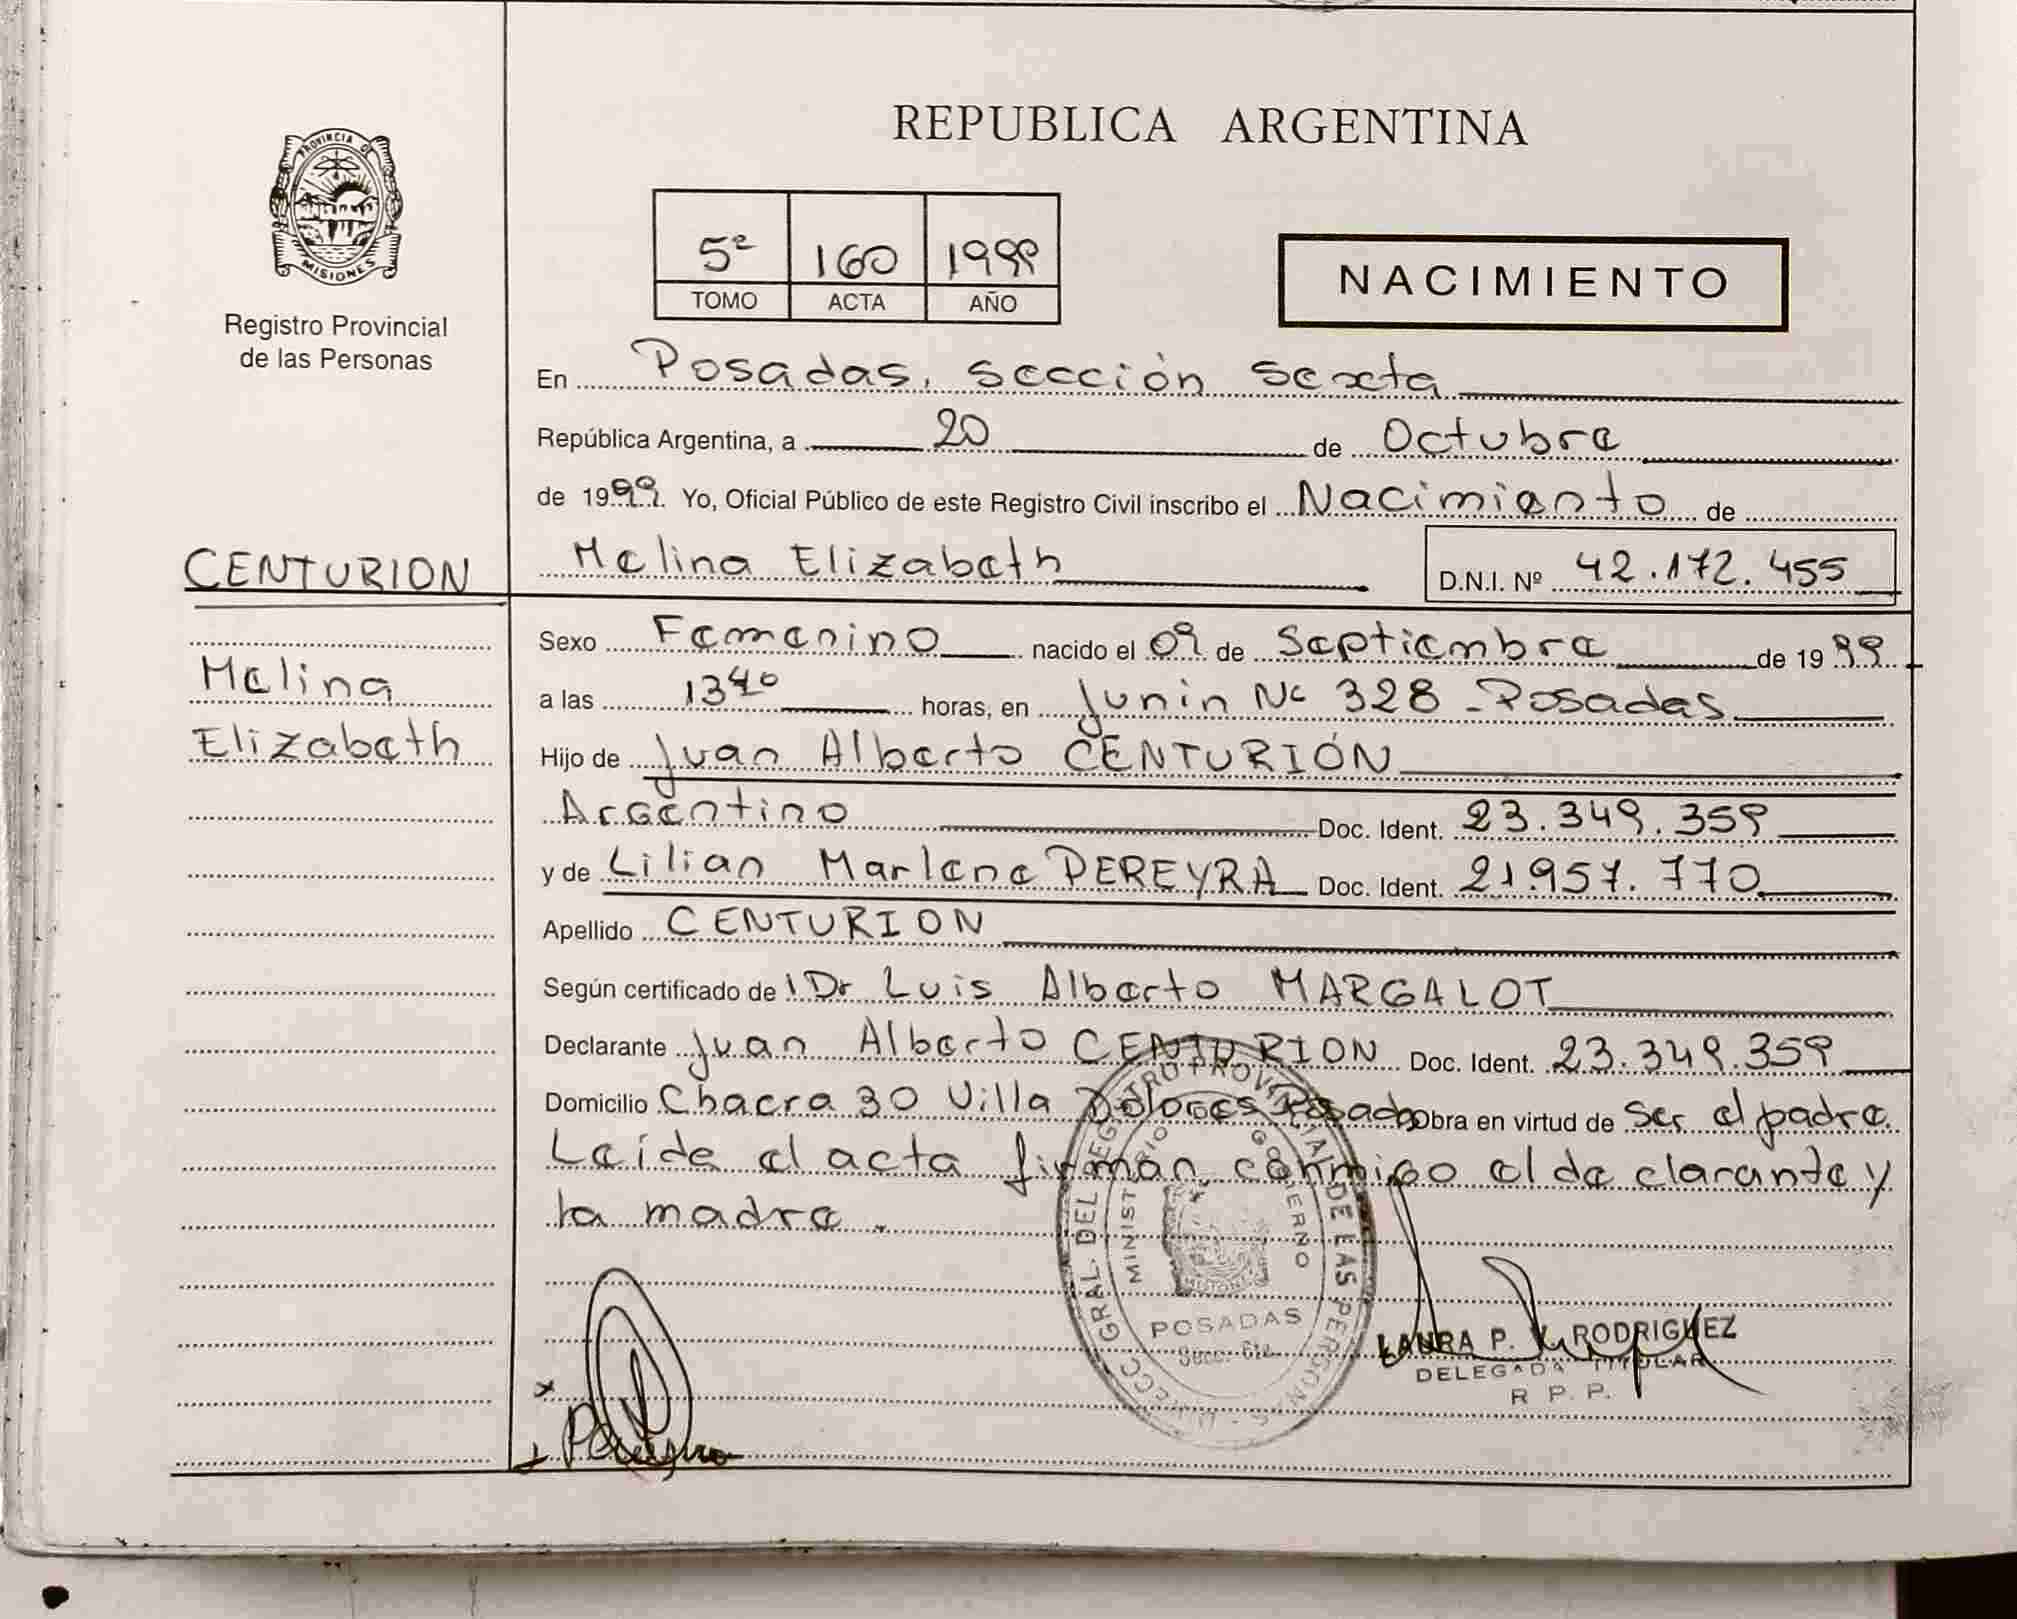 REPUBLICA ARGENTINA
PROVINCIA DE
MISIONES
Registro Provincial
de las Personas
5º 160 1999
TOMO ACTA AÑO
NACIMIENTO
En Posadas, sección sexta
República Argentina, a 20 de Octubre
de 1999. Yo, Oficial Público de este Registro Civil inscribo el Nacimiento de
CENTURION
Melina Elizabeth D.N.I. Nº 42.172.455
Melina
Elizabeth
Sexo Femenino nacido el 09 de Septiembre de 1999
a las 13 40 horas, en Junin Nº 328 - Posadas
Hijo de Juan Alberto CENTURIÓN
Argentino Doc. Ident. 23.349.359
y de Lilian Marlene PEREYRA Doc. Ident. 21.957.770
Apellido CENTURION
Según certificado de Dr Luis Alberto MARGALOT
Declarante Juan Alberto CENTURION Doc. Ident. 23.349.359
Domicilio Chacra 30 Villa Dolores Posadas Obra en virtud de ser el padre.
Leída el acta firman, conmigo el declarante y
la madre.
DIRECC. GRAL. DEL REGISTRO PROVINCIAL DE LAS PERSONAS
MINISTERIO GOBIERNO
POSADAS
Secc. 6ta.
LAURA P. V. RODRIGUEZ
DELEGADA TITULAR
R P. P.
x
+ Pereyra